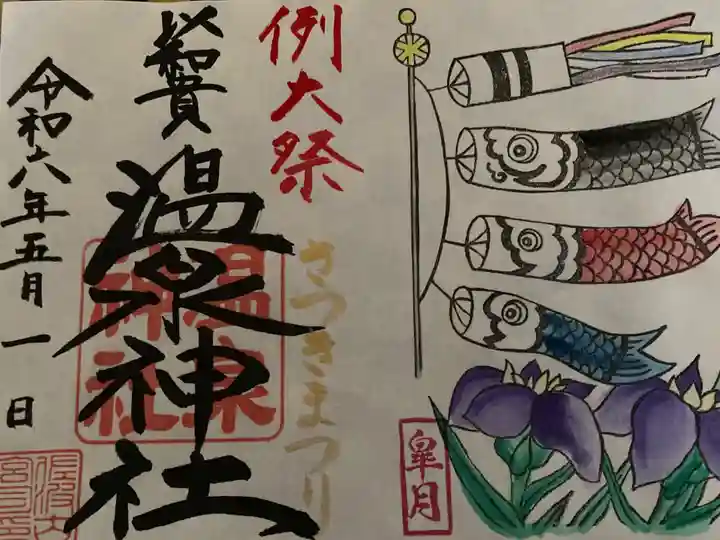 例大祭
さつきまつり
温泉神社
温泉神社
令和六年五月一日
皐月